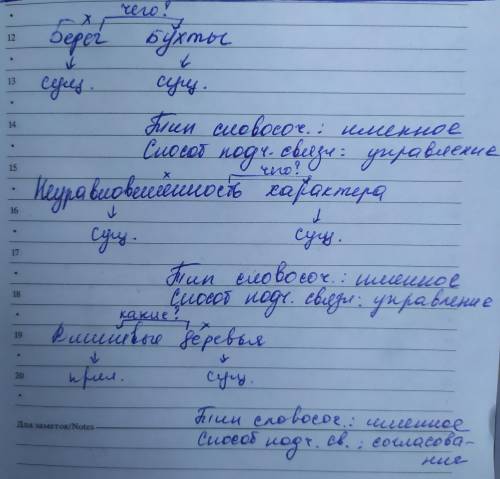 чего?
12 Берег бухты
13 сущ. сущ.
14 Тип словосоч.: именное
Способ подч. связи: управление
15 чего?
Неуравновешенность характера
16
сущ. сущ.
17
Тип словосоч.: именное
18 Способ подч. связи: управление
какие?
19 вишнёвые деревья
20 прил. сущ.
Тип словосоч.: именное
Для заметок/Notes Способ подч. св.: согласова-
ние